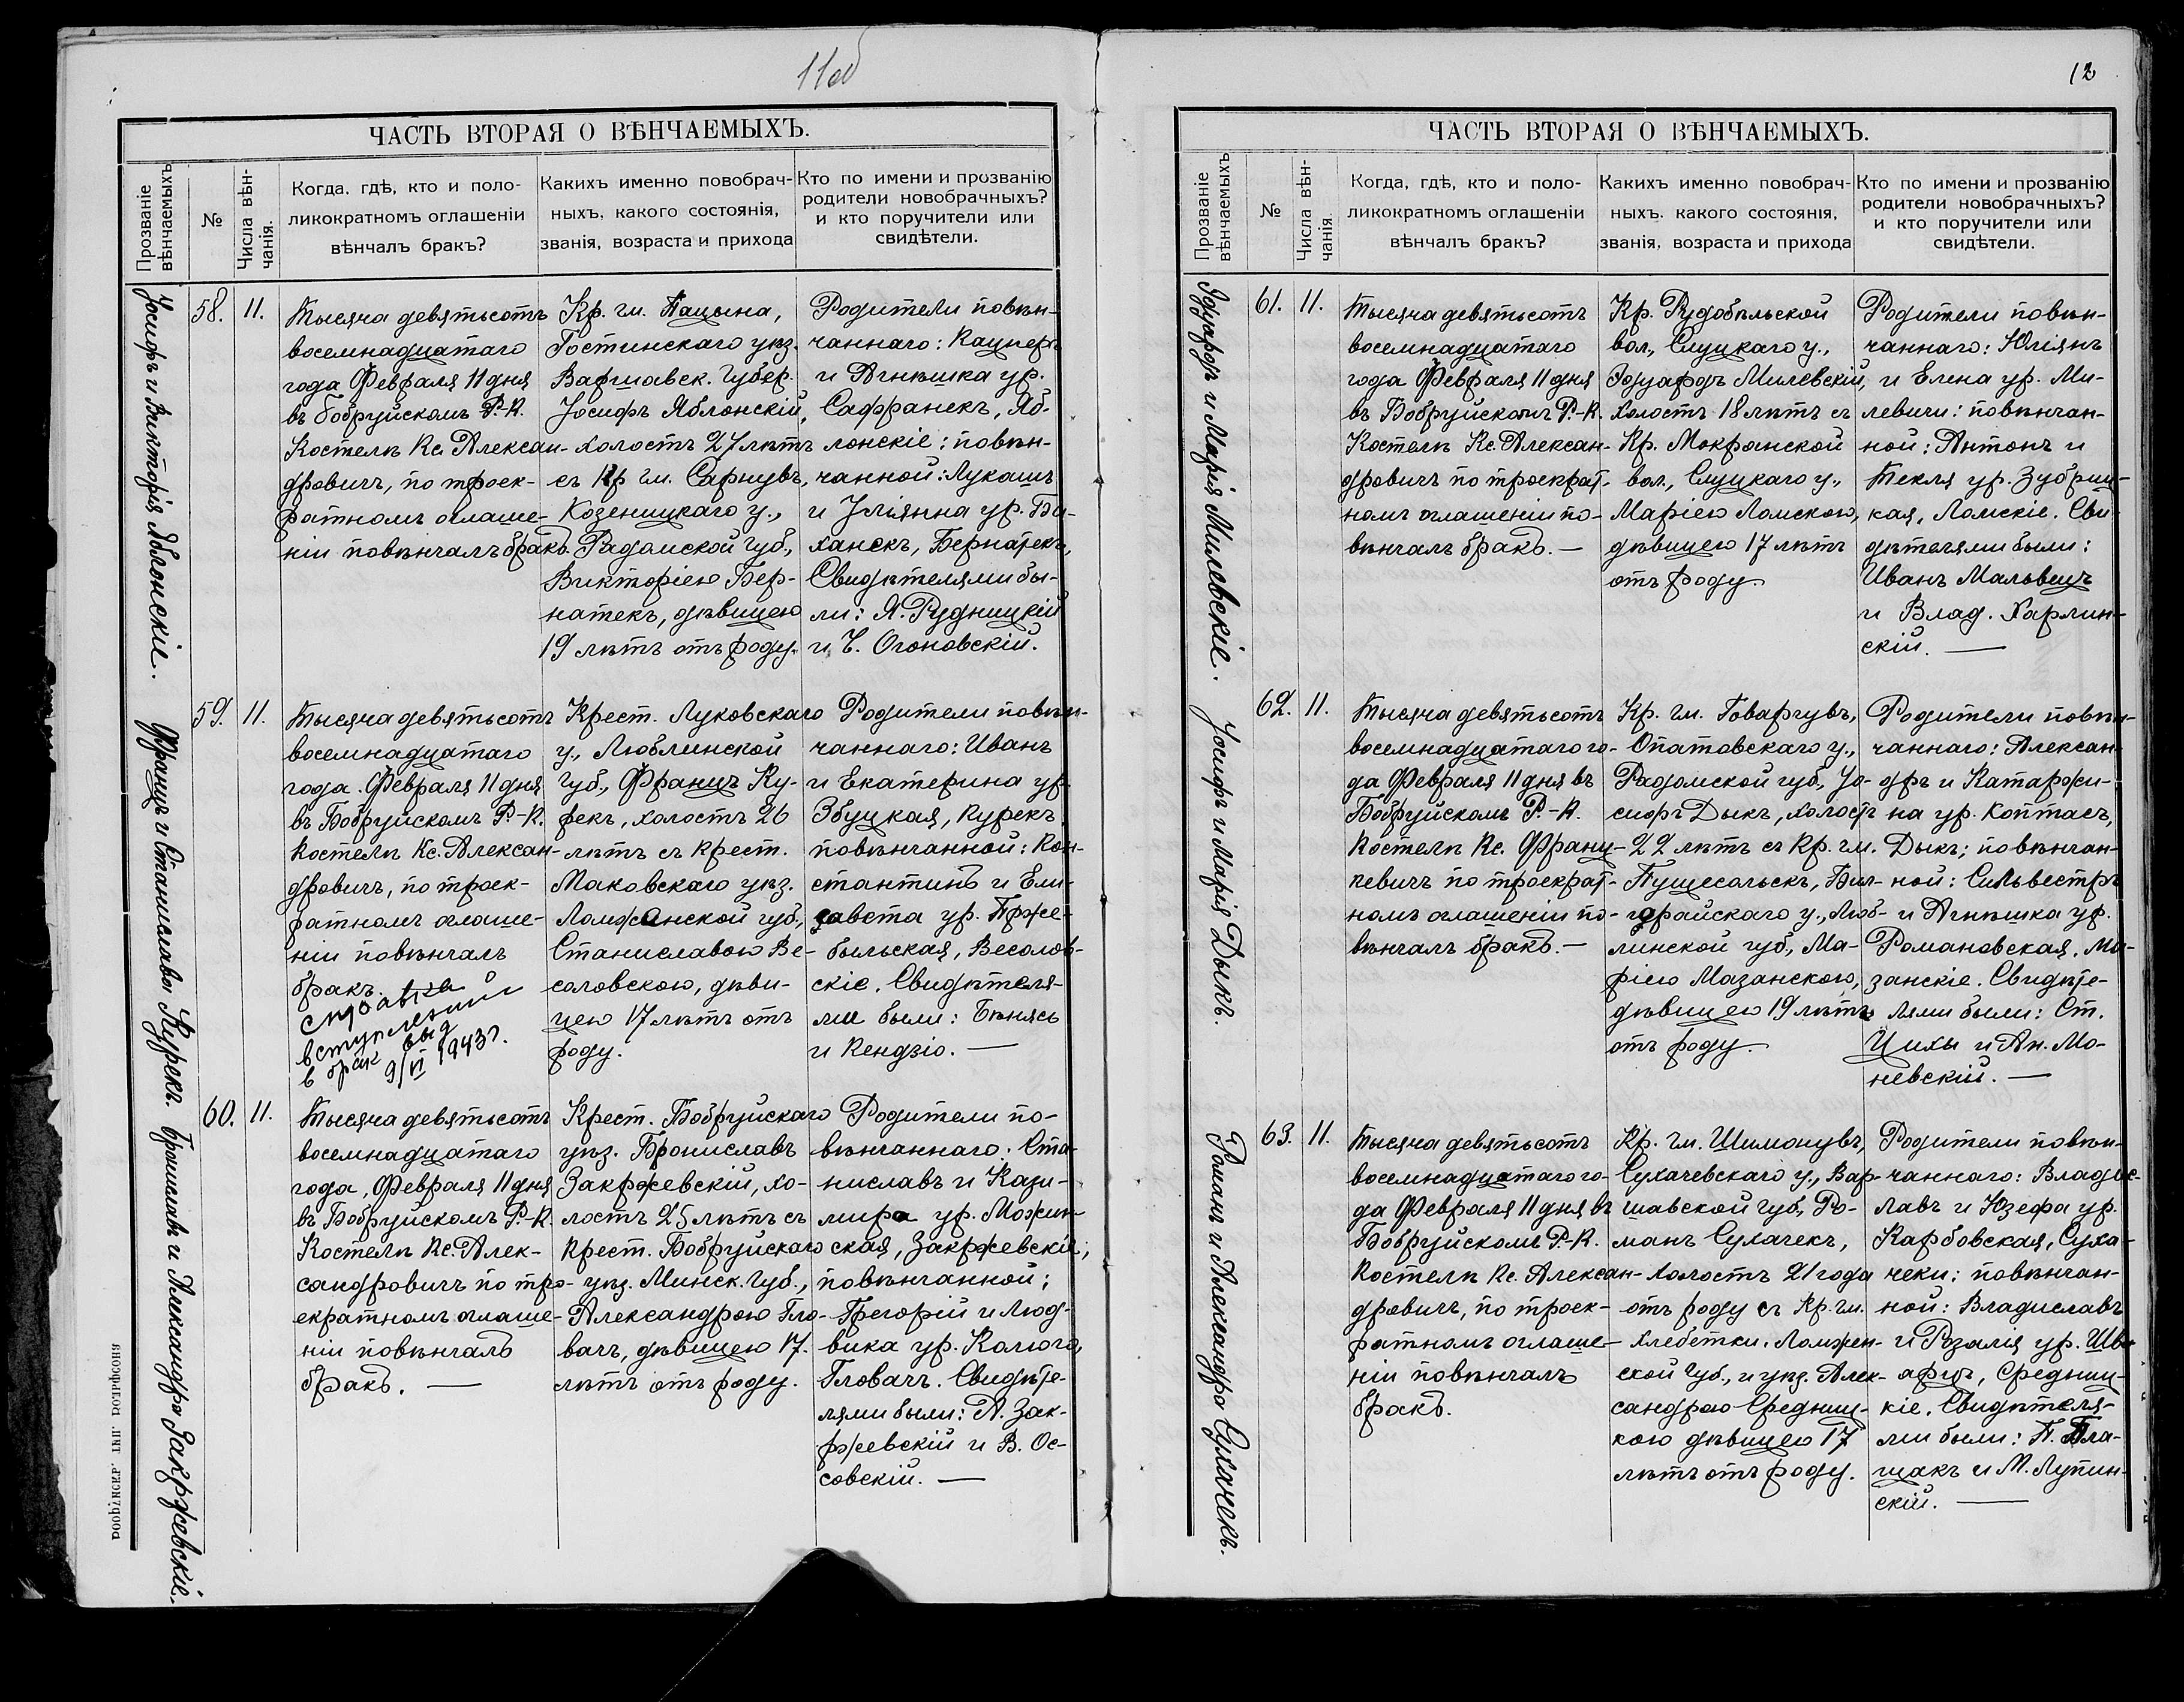 11об
ЧАСТЬ ВТОРАЯ О ВѢНЧАЕМЫХЪ.
Прозваніе вѣнчаемыхъ
№
Числа вѣн-
чанія.
Когда, гдѣ, кто и поло-
ликократномъ оглашеніи
вѣнчалъ бракъ?
Какихъ именно повобрач-
ныхъ, какого состоянія,
званія, возраста и прихода
Кто по имени и прозванію
родители новобрачныхъ?
и кто поручители или
свидѣтели.
Іосифъ и Викторія Яблонскіе.
58.
11.
Тысяча девятьсотъ
восемнадцатаго
года Февраля 11 дня
въ Бобруйскомъ Р.-К.
Костелѣ Кс. Алексан-
дровичъ, по троек-
ратномъ оглаше-
ніи повѣнчалъ бракъ.
Кр. гм. Пацына,
Гостинскаго уѣз.
Варшавск. Губер.
Іосифъ Яблонскій,
холостъ 27 лѣтъ
съ Кр гм. Сарнувъ,
Козеницкаго у.,
Радомской Губ.,
Викторіею Бер-
натекъ, дѣвицею
19 лѣтъ отъ роду.
Родители повѣн-
чаннаго: Кацперъ
и Агнѣшка ур.
Саффранекъ, Яб-
лонскіе; повѣн-
чанной: Лукашъ
и Іліянна ур. Бо-
ханекъ, Бернатекъ,
Свидѣтелями бы-
ли: Я. Рудницкій
и Ч. Огоновскій.
Францъ и Станиславы Курекъ.
59.
11.
Тысяча девятьсотъ
восемнадцатаго
года. Февраля 11 дня
въ Бобруйскомъ Р.-К.
Костелѣ Кс. Алексан-
дровичъ, по троек-
ратномъ оглаше-
ніи повѣнчалъ
бракъ.
справка
вступлении
в брак выд
9/VI 1943г.
Крест. Луковскаго
у., Люблинской
Губ., Францъ Ку-
рекъ, холостъ 26
лѣтъ съ Крест.
Маковскаго уѣз.
Ломжанской губ.,
Станиславою Ве-
соловскою, дѣви-
цею 17 лѣтъ отъ
роду.
Родители повѣн-
чаннаго: Иванъ
и Екатерина ур.
Збуцкая, Курекъ
повѣнчанной: Кон-
стантинъ и Ели-
савета ур. Прже-
быльская, Весолов-
скіе. Свидѣтеля-
ми были: Бѣнясь
и Кендзіо. —
Брониславъ и Александра Закржевскіе.
60.
11.
Тысяча девятьсотъ
восемнадцатаго
года, Февраля 11 дня
въ Бобруйскомъ Р.-К.
Костелѣ Кс. Алек-
сандровичъ по тро-
екратномъ оглаше-
ніи повѣнчалъ
бракъ. —
Крест. Бобруйскаго
уѣз. Брониславъ
Закржевскій, хо-
лостъ 25 лѣтъ съ
Крест. Бобруйскаго
уѣз. Минск. Губ.,
Александрою Гло-
вачъ, дѣвицею 17.
лѣтъ отъ роду.
Родители по-
вѣнчаннаго: Ста-
ниславъ и Кази-
мира ур. Можин-
ская, Закржевскіе;
повѣнчанной;
Грегорій и Люд-
вика ур. Калюго,
Гловачъ. Свидѣте-
лями были: А. Зак-
ржевскій и В. Ос-
совскій. —
12
ЧАСТЬ ВТОРАЯ О ВѢНЧАЕМЫХЪ.
Прозваніе вѣнчаемыхъ
№
Числа вѣн-
чанія.
Когда, гдѣ, кто и поло-
ликократномъ оглашеніи
вѣнчалъ бракъ?
Какихъ именно повобрач-
ныхъ. какого состоянія,
званія, возраста и прихода
Кто по имени и прозванію
родители новобрачныхъ?
и кто поручители или
свидѣтели.
Эдуардъ и Марія Милевскіе.
61.
11.
Тысяча девятьсотъ
восемнадцатаго
года Февраля 11 дня
въ Бобруйскомъ Р.-К.
Костелѣ Кс. Алексан-
дровичъ по троекрат-
номъ оглашеніи по-
вѣнчалъ бракъ. —
Кр. Рудобѣльской
вол., Слуцкаго у.,
Эдуардъ Милевскій,
холостъ 18 лѣтъ съ
Кр. Мокранской
вол., Слуцкаго у.,
Маріею Ломскою,
дѣвицею 17 лѣтъ
отъ роду.
Родители повѣн-
чаннаго: Юліянъ
и Елена ур. Ми-
левичи: повѣнчан-
ной: Антонъ и
Текля ур. Зубриц-
кая, Ломскіе. Сви-
дѣтелями были:
Иванъ Мальвецъ
и Влад. Харлин-
скій. —
Іосифъ и Марія Дыкъ.
62.
11.
Тысяча девятьсотъ
восемнадцатаго го-
да Февраля 11 дня въ
Бобруйскомъ Р.-К.
Костелѣ Кс. Франц-
кевичъ по троекрат-
номъ оглашеніи по-
вѣнчалъ бракъ. —
Кр. гм. Говарчувъ,
Опатовскаго у.,
Радомской губ., Іо-
сифъ Дыкъ, холостъ
22 лѣтъ съ Кр. гм.
Пущесольскъ, Бил-
горайскаго у., Люб-
линской губ., Ма-
ріею Мазанскою,
дѣвицею 19 лѣтъ
отъ роду.
Родители повѣн-
чаннаго: Алексан-
дръ и Катаржи-
на ур. Коптасъ,
Дыкъ; повѣнчан-
ной: Сильвестръ
и Агнѣшка ур.
Романовская, Ма-
занскіе. Свидѣте-
лями были: Ст.
Цихы и Ан. Мо-
невскій. —
Романъ и Александра Сухачекъ.
63.
11.
Тысяча девятьсотъ
восемнадцатаго го-
да Февраля 11 дня въ
Бобруйскомъ Р.-К.
Костелѣ Кс. Алексан-
дровичъ, по троек-
ратномъ оглаше-
ніи повѣнчалъ
бракъ.
Кр. гм. Шимонувъ,
Сухачевскаго у., Вар-
шавской Губ., Ро-
манъ Сухачекъ,
холостъ 21 года
отъ роду съ Кр. гм.
Хлебетки. Ломжен-
ской Губ., и уѣз. Алек-
сандрою Средниц-
кою дѣвицею 17
лѣтъ отъ роду.
Родители повѣн-
чаннаго: Владис-
лавъ и Юзефа ур.
Карбовская, Суха-
чеки; повѣнчан-
ной: Владиславъ
и Розалія ур. Шв-
арцъ, Средниц-
кіе. Свидѣтеля-
ми были: П. Пла-
щакъ и М. Лупин-
скій. —